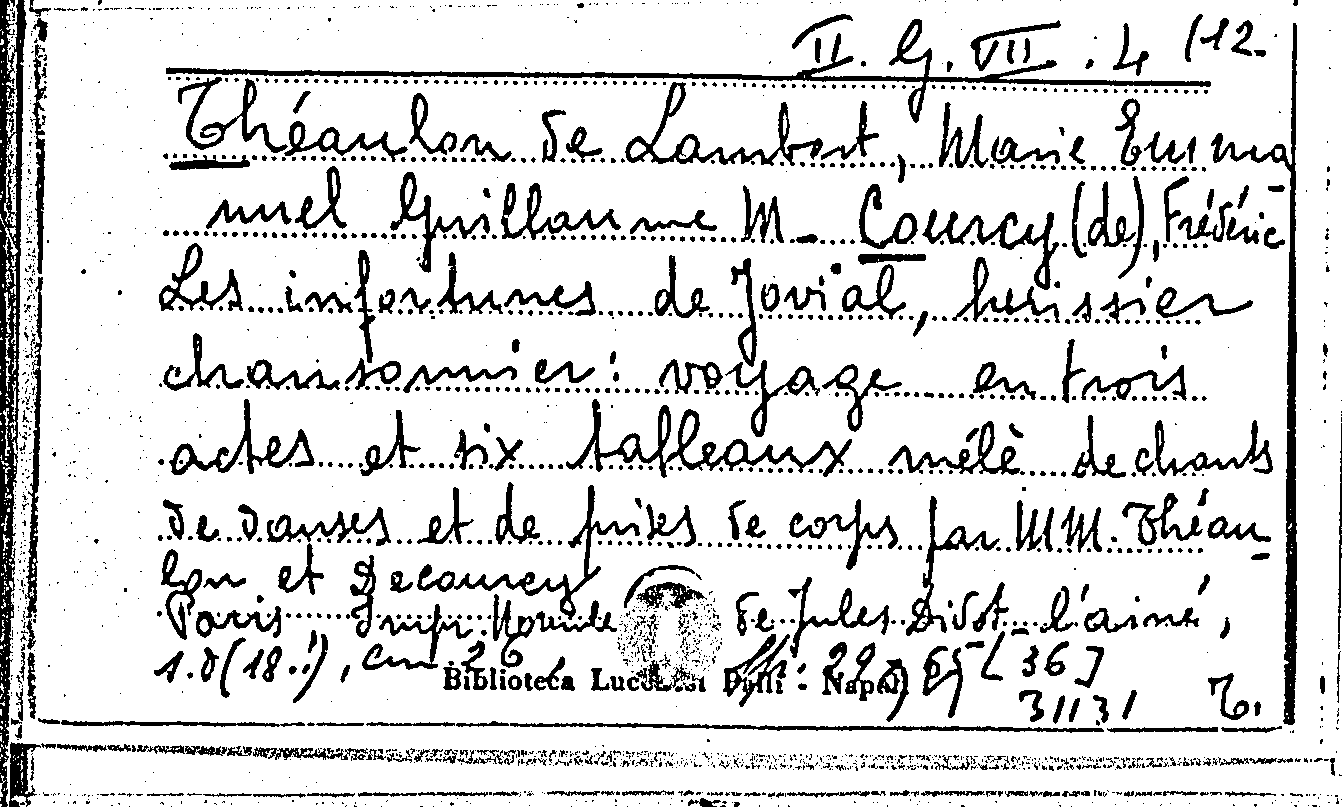 II. G. VII. 4 (12.
Théaulon de Lambert, Marie Emma-
nuel Guillaume M - Courcy (de), Frédéric
Les infortunes de Jovial, huissier
chansonnier: voyage en trois
actes et six tableaux mélè de chants
de danses et de prises de corps par MM. Théau-
lon et Decourcy
Paris, Imp. Normale de Jules Didot l'ainé,
s.d (18..), cm. 26, 29, 65 [36]
Biblioteca Lucchesi Palli - Napoli
31131 T.